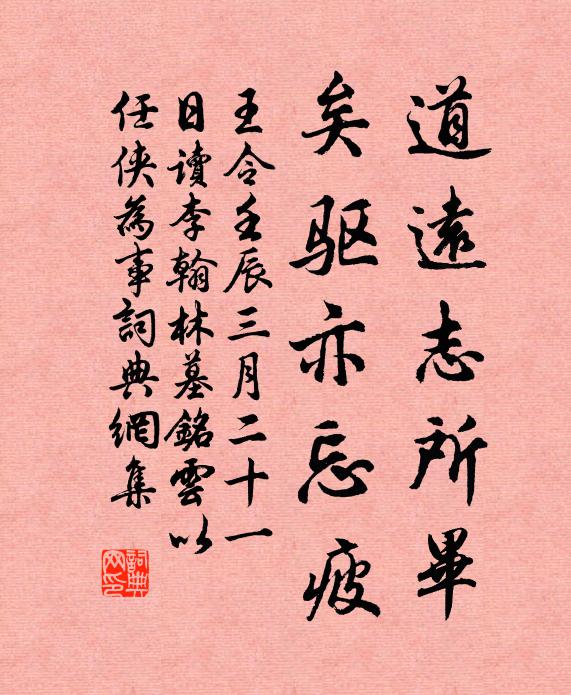 道遠志所畢
矣驱亦忘疲
王令壬辰三月二十一
日讀李翰林墓銘雲以
任俠為事詞典網集
詞典
网印